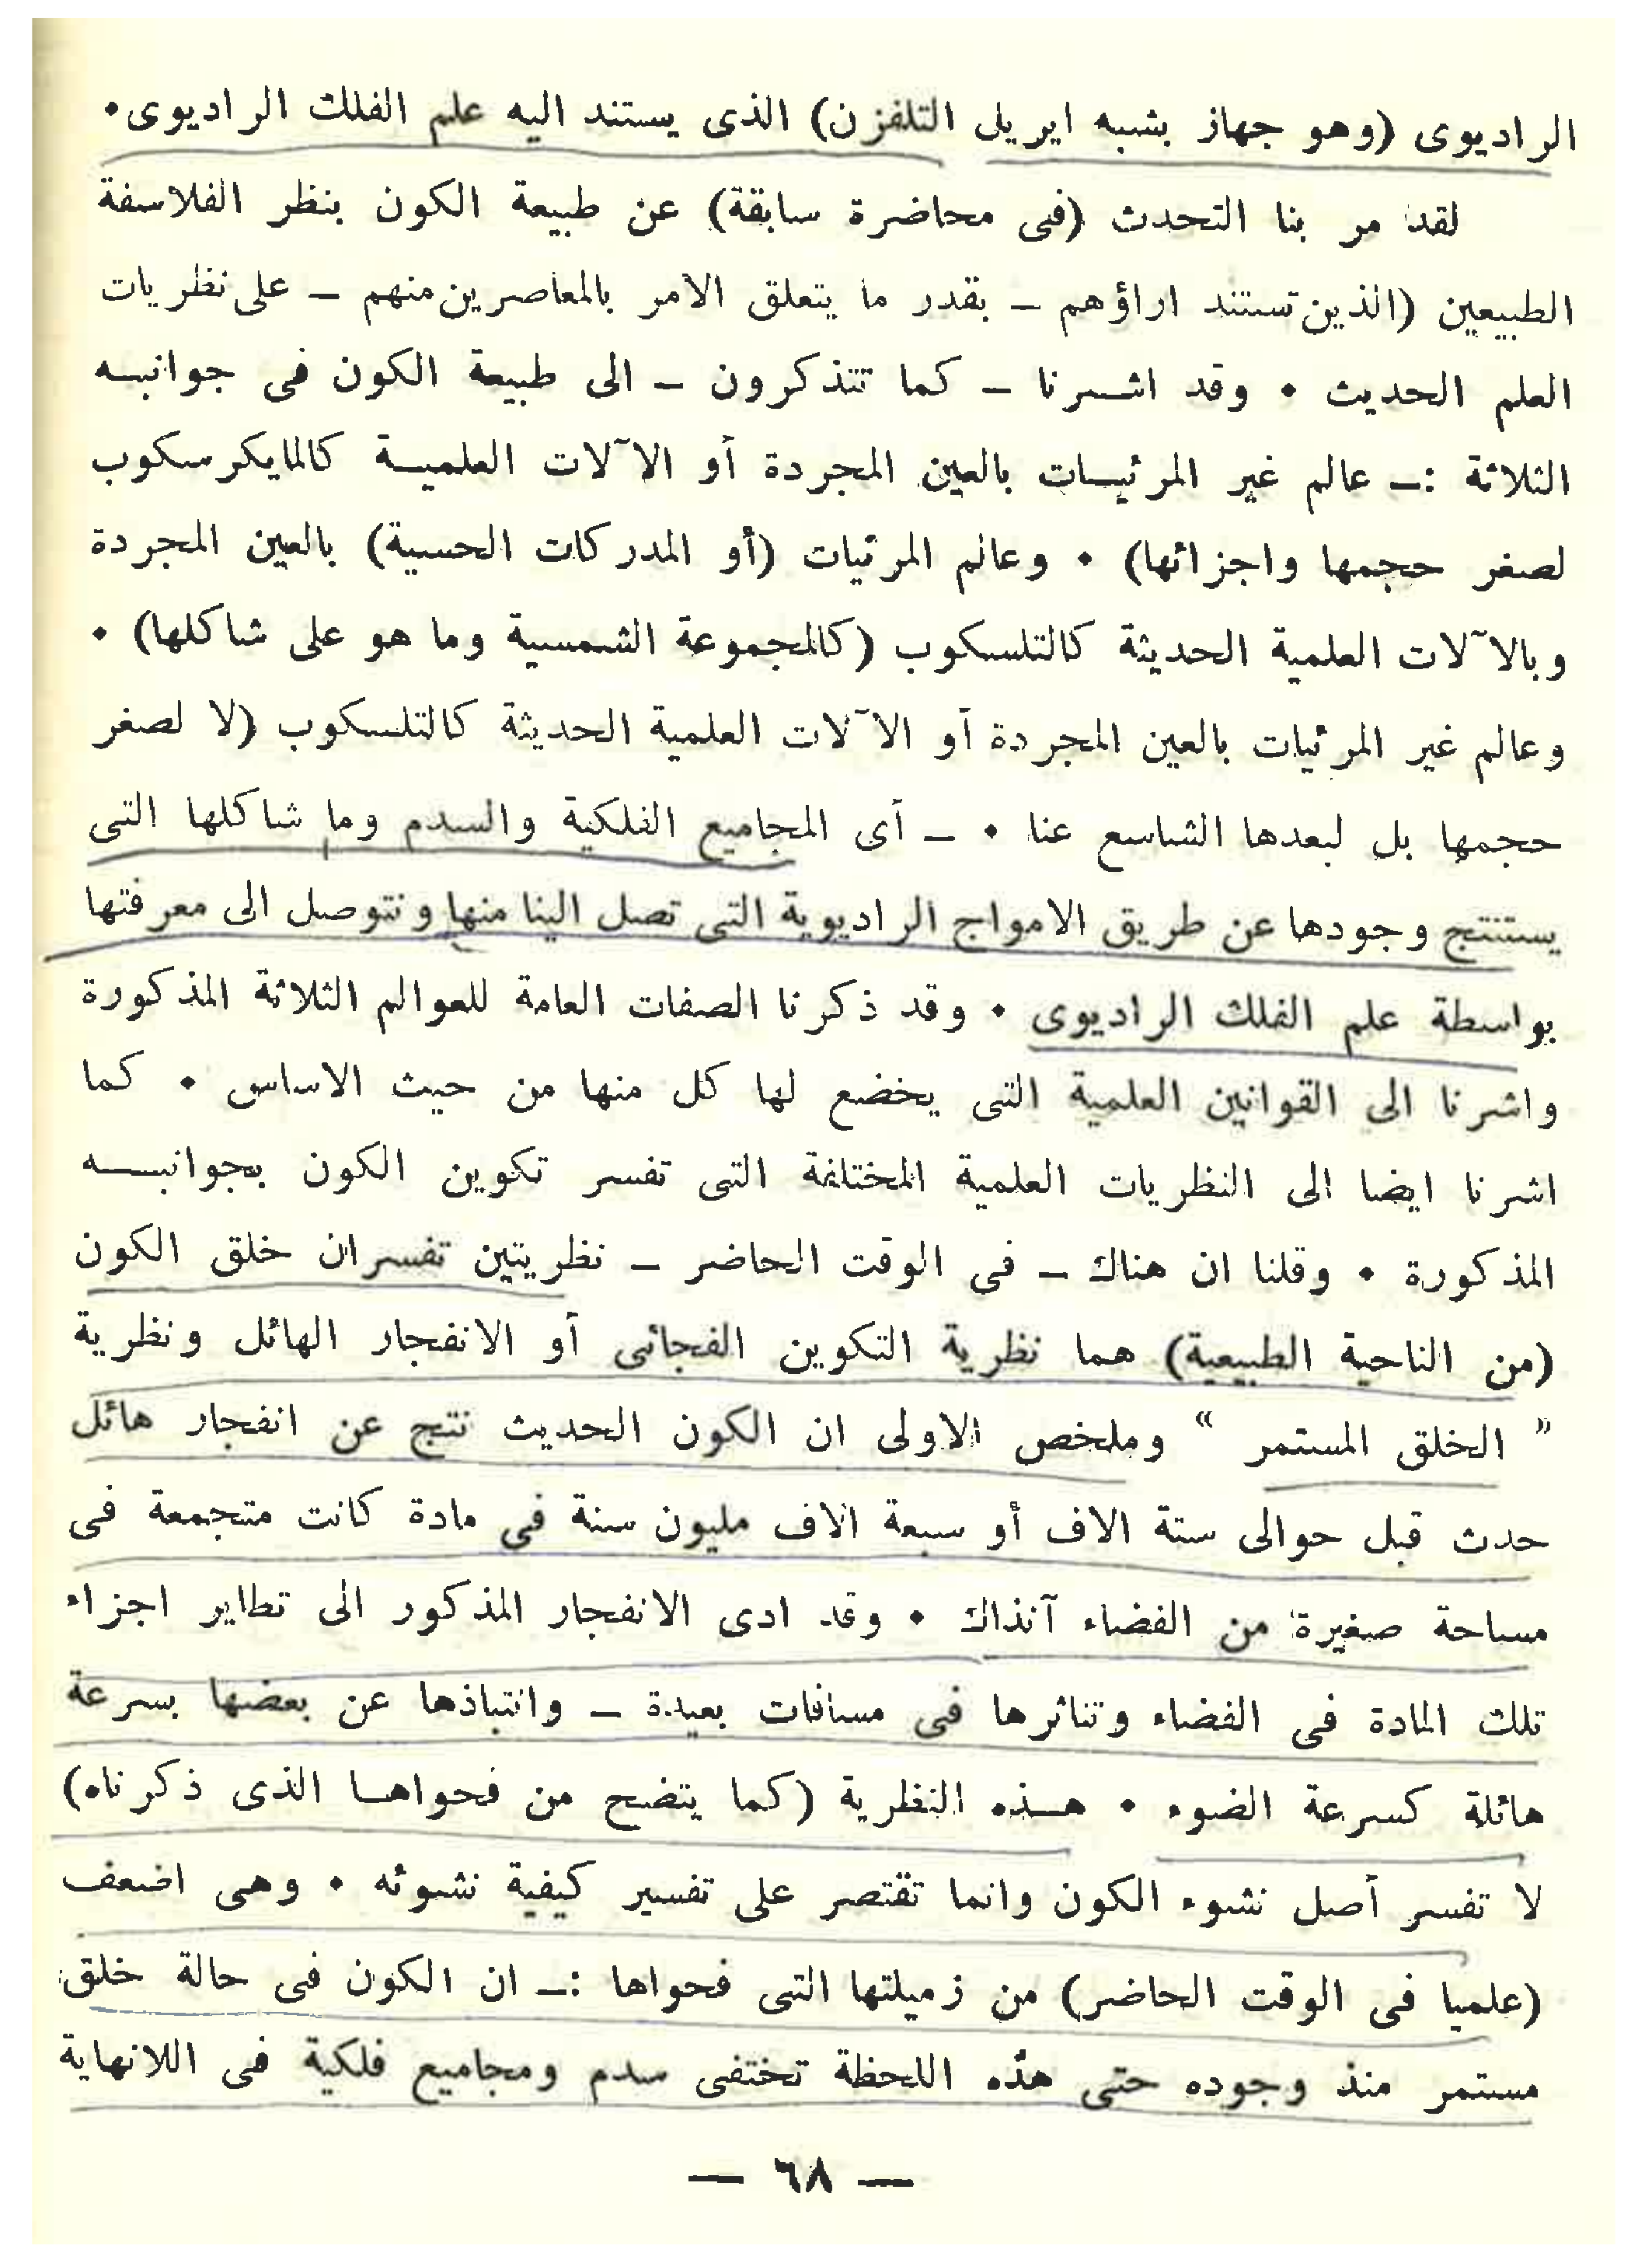 الراديوى (وهو جهاز بشبه ايريلى التلفزن) الذى يستند اليه علم الفلك الراديوى٠
لقد مر بنا التحدث (فى محاضرة سابقة) عن طبيعة الكون بنظر الفلاسفة
الطبيعين (الذين تستند اراؤهم – بقدر ما يتعلق الامر بالمعاصرين منهم – على نظريات
العلم الحديث ٠ وقد اشرنا – كما تتذكرون – الى طبيعة الكون فى جوانبه
الثلاثة :– عالم غير المرئيات بالعين المجردة أو الآلات العلمية كالمايكرسكوب
لصغر حجمها واجزائها) ٠ وعالم المرئيات (أو المدركات الحسية) بالعين المجردة
وبالآلات العلمية الحديثة كالتلسكوب (كالمجموعة الشمسية وما هو على شاكلها) ٠
وعالم غير المرئيات بالعين المجردة أو الآلات العلمية الحديثة كالتلسكوب (لا لصغر
حجمها بل لبعدها الشاسع عنا ٠ – أى المجاميع الفلكية والسدم وما شاكلها التى
يستنتج وجودها عن طريق الامواج الراديوية التى تصل الينا منها ونتوصل الى معرفتها
بواسطة علم الفلك الراديوى ٠ وقد ذكرنا الصفات العامة للعوالم الثلاثة المذكورة
واشرنا الى القوانين العلمية التى يخضع لها كل منها من حيث الاساس ٠ كما
اشرنا ايضا الى النظريات العلمية المختلفة التى تفسر تكوين الكون بجوانبه
المذكورة ٠ وقلنا ان هناك – فى الوقت الحاضر – نظريتين تفسران خلق الكون
(من الناحية الطبيعية) هما نظرية التكوين الفجائى أو الانفجار الهائل ونظرية
« الخلق المستمر » وملخص الاولى ان الكون الحديث نتج عن انفجار هائل
حدث قبل حوالى ستة الاف أو سبعة الاف مليون سنة فى مادة كانت متجمعة فى
مساحة صغيرة من الفضاء آنذاك ٠ وقد ادى الانفجار المذكور الى تطاير اجزاء
تلك المادة فى الفضاء وتناثرها فى مسافات بعيدة – وانتباذها عن بعضها بسرعة
هائلة كسرعة الضوء ٠ هذه النظرية (كما يتضح من فحواها الذى ذكرناه)
لا تفسر أصل نشوء الكون وانما تقتصر على تفسير كيفية نشوئه ٠ وهى اضعف
(علميا فى الوقت الحاضر) من زميلتها التى فحواها :– ان الكون فى حالة خلق
مستمر منذ وجوده حتى هذه اللحظة تختفى سدم ومجاميع فلكية فى اللانهاية
— ٦٨ —